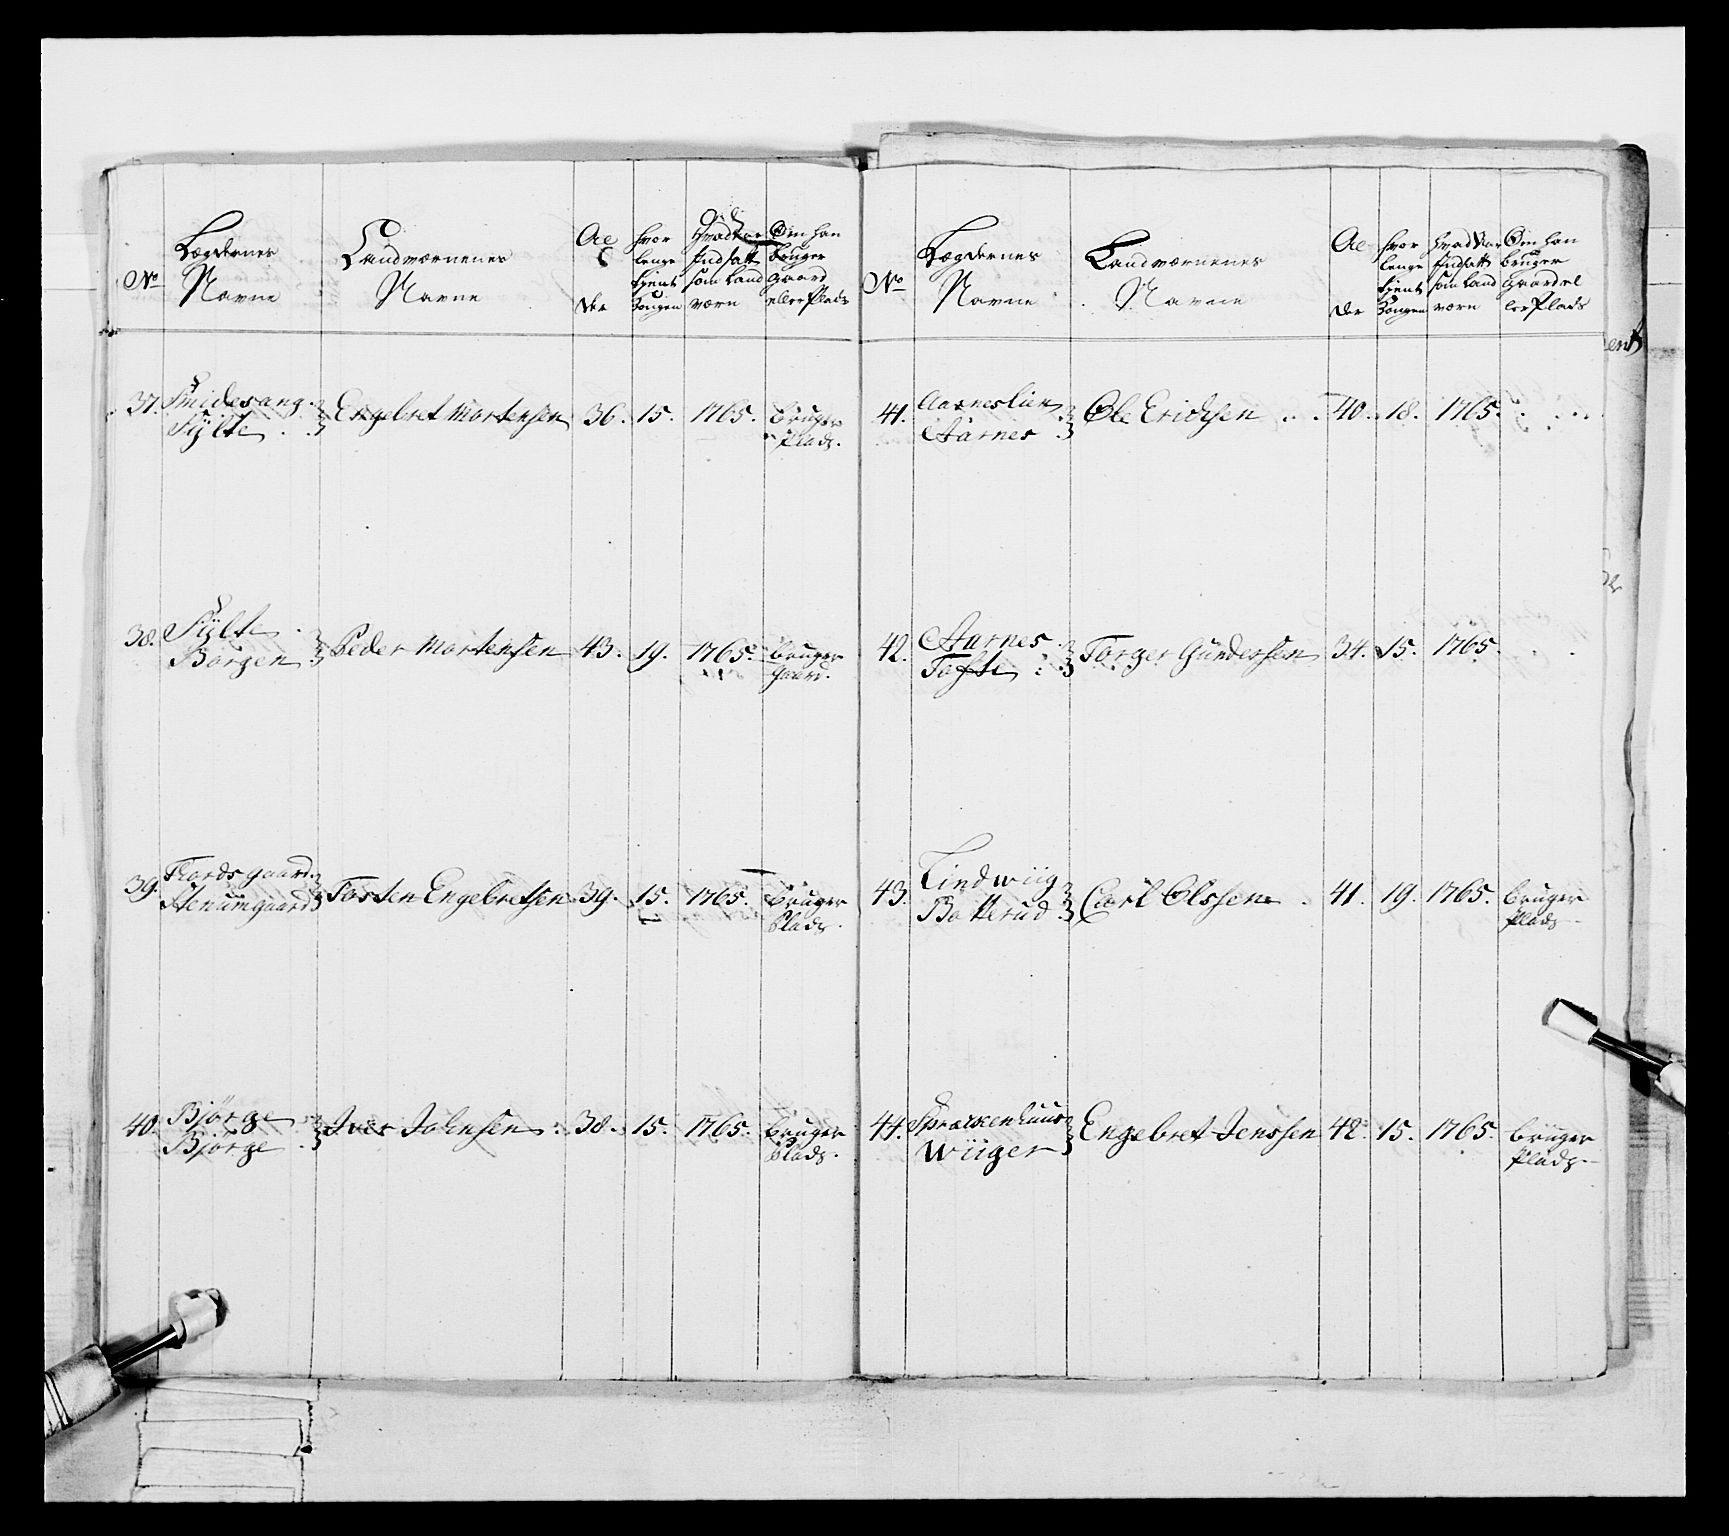 No
Lægdernes
Navne
Landværnenes
Navne
Ae
der
hvor
lenge
tjent
Kongen
Hvad Aar
Indsatt
som Land
værn
Om han
bruger
Gaard
eller Plads
37. Smidesang
Sylte
Engebret Mortensen 36. 15. 1765. bruger
Plads.
38. Sylte
Borgen
Peder Mortensen 43. 19. 1765. bruger
Gaard.
39. Thordsgaard
Stenumgaard
Torsten Engebretsen 39. 15. 1765. bruger
Plads.
40. Bjørge
Bjørge
Iver Johnsen 38. 15. 1765. bruger
Plads.
No
Lægdernes
Navne
Landværnenes
Navne
Ae
der
hvor
lenge
tjent
Kongen
hvad Aar
Indsatt
som Land
værn
Om han
bruger
Gaard el
ler Plads
41. Aarneslien
Aarnes
Ole Erichsen 40. 18. 1765.
42. Aarnes
Tofte
Torger Gundersen 34. 15. 1765.
43. Lindwiig
Botterud
Carl Olssen 41. 19. 1765. bruger
Plads
44. Sprækenhuus
Wiiger
Engebret Jenssen 42. 15. 1765. bruger
Plads